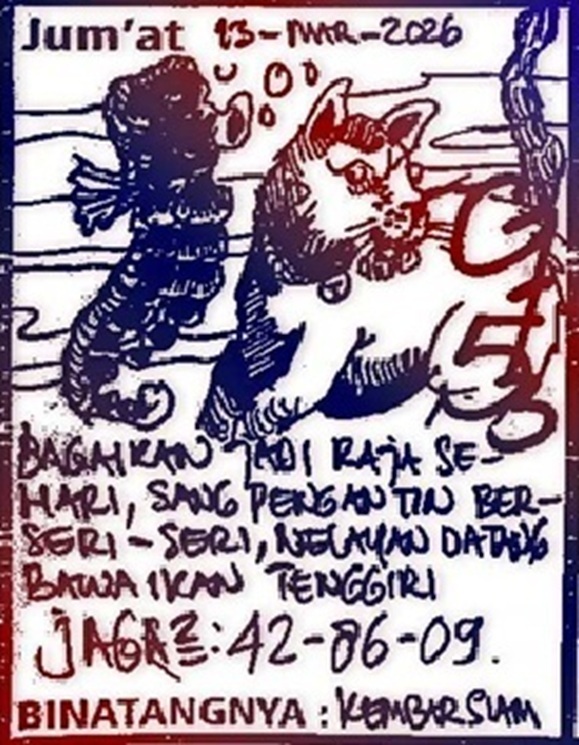 Jum'at 13-MAR-2026
BAGAIKAN JADI RAJA SE-
HARI, SANG PENGANTIN BER-
SERI-SERI, NELAYAN DATANG
BAWA IKAN TENGGIRI
JAGA2: 42-86-09.
BINATANGNYA : KEMBAR SIAM